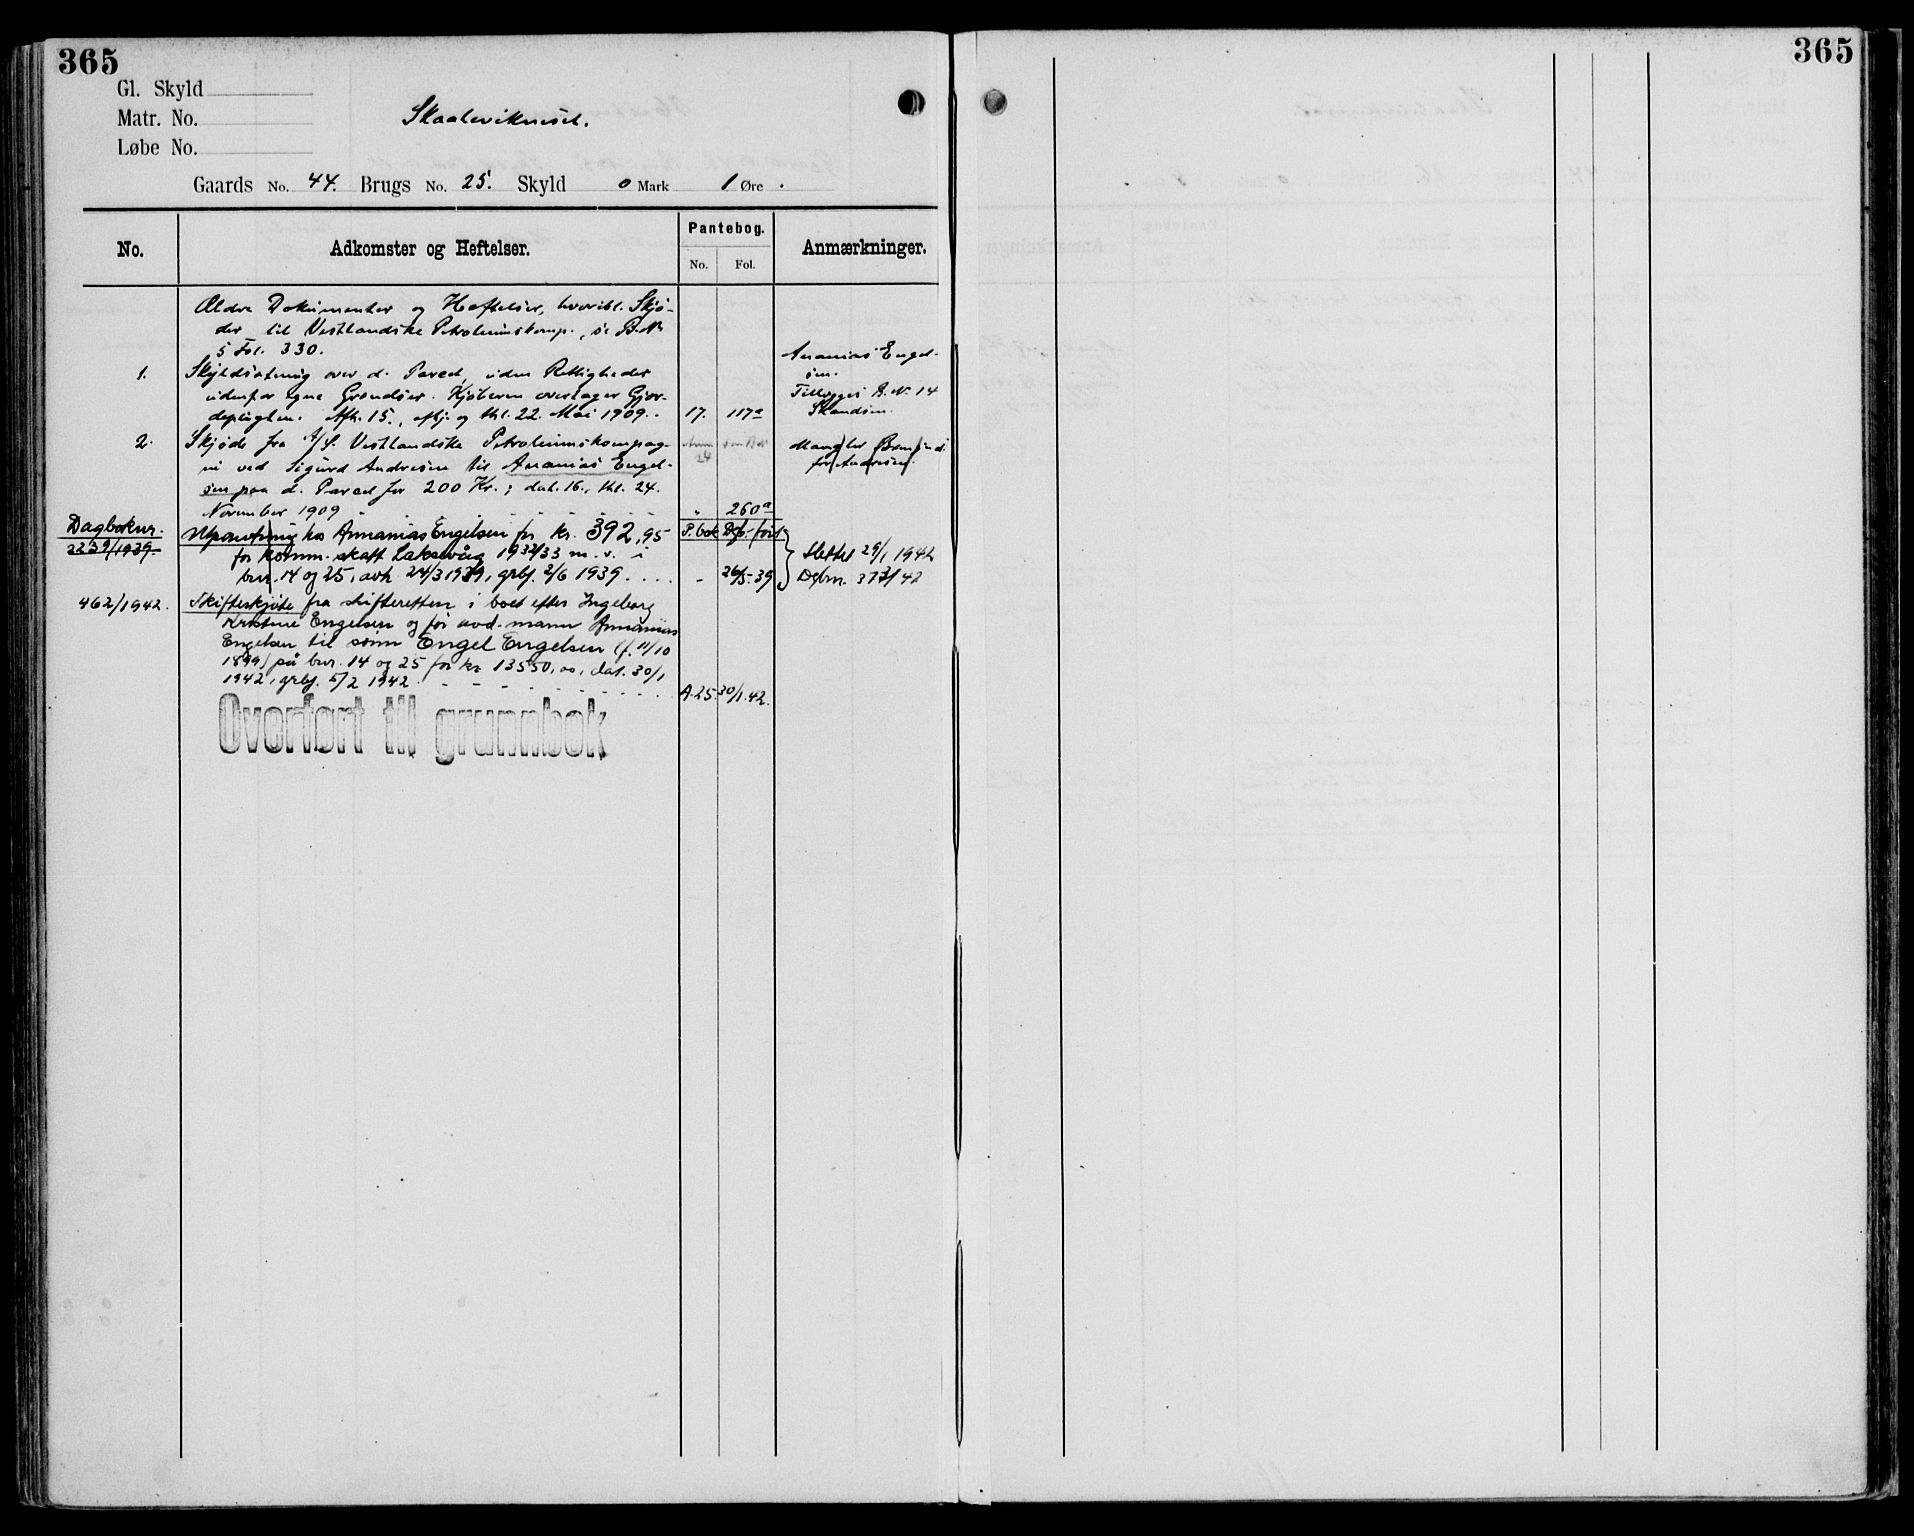 365
365
Gl. Skyld
Matr. No.
Skaaleviknesset.
Løbe No.
Gaards No. 44. Brugs No. 25. Skyld 0 Mark 1 Øre.
No.
Adkomster og Heftelser.
Pantebog.
No. Fol.
Anmærkninger.
Ældre Dokumenter og Heftelser, hvoribl. Skjø-
der til Vestlandske Petroleumskomp., se B. No
5 Fol. 330.
1. Skyldsætning over d. Parcel, uden Rettigheder
udenfor egne Grændser. Kjøberen overtager Gjær-
depligten. Afh. 15., aflj. og thl. 22. Mai 1909. 17. 117a
Ananias Engel-
sen.
Tillægges B. No. 14
Skandsen.
2. Skjøde fra A/S. Vestlandske Petroleumskompag-
ni ved Sigurd Andresen til Ananias Engel-
sen paa d. Parcel for 200 Kr.; dat. 16., thl. 24.
November 1909 " 260a
24
Mangler
for Andresen.
Dagboknr.
2239/1939
P.bok Dgb.-ført
Utpantning hos Annanias Engelsen for kr. 392,95
for komm. skatt Laksevåg 1932/33 m. v. i
bnr. 14 og 25, avh. 24/3 1939, grbf. 2/6 1939. . . . - 26/5-39
Slettet 29/1 1942
Dgbnr. 373/42
462/1942. Skifteskjøte fra skifteretten i boet efter Ingeborg
Kristine Engelsen og før avd. mann Annanias
Engelsen til sønn Engel Engelsen (f. 11/10
1899) på bnr. 14 og 25 for kr 13550,00, dat. 30/1
1942, grbf. 5/2 1942. A.25. 30/1.42.
Overført til grunnbok